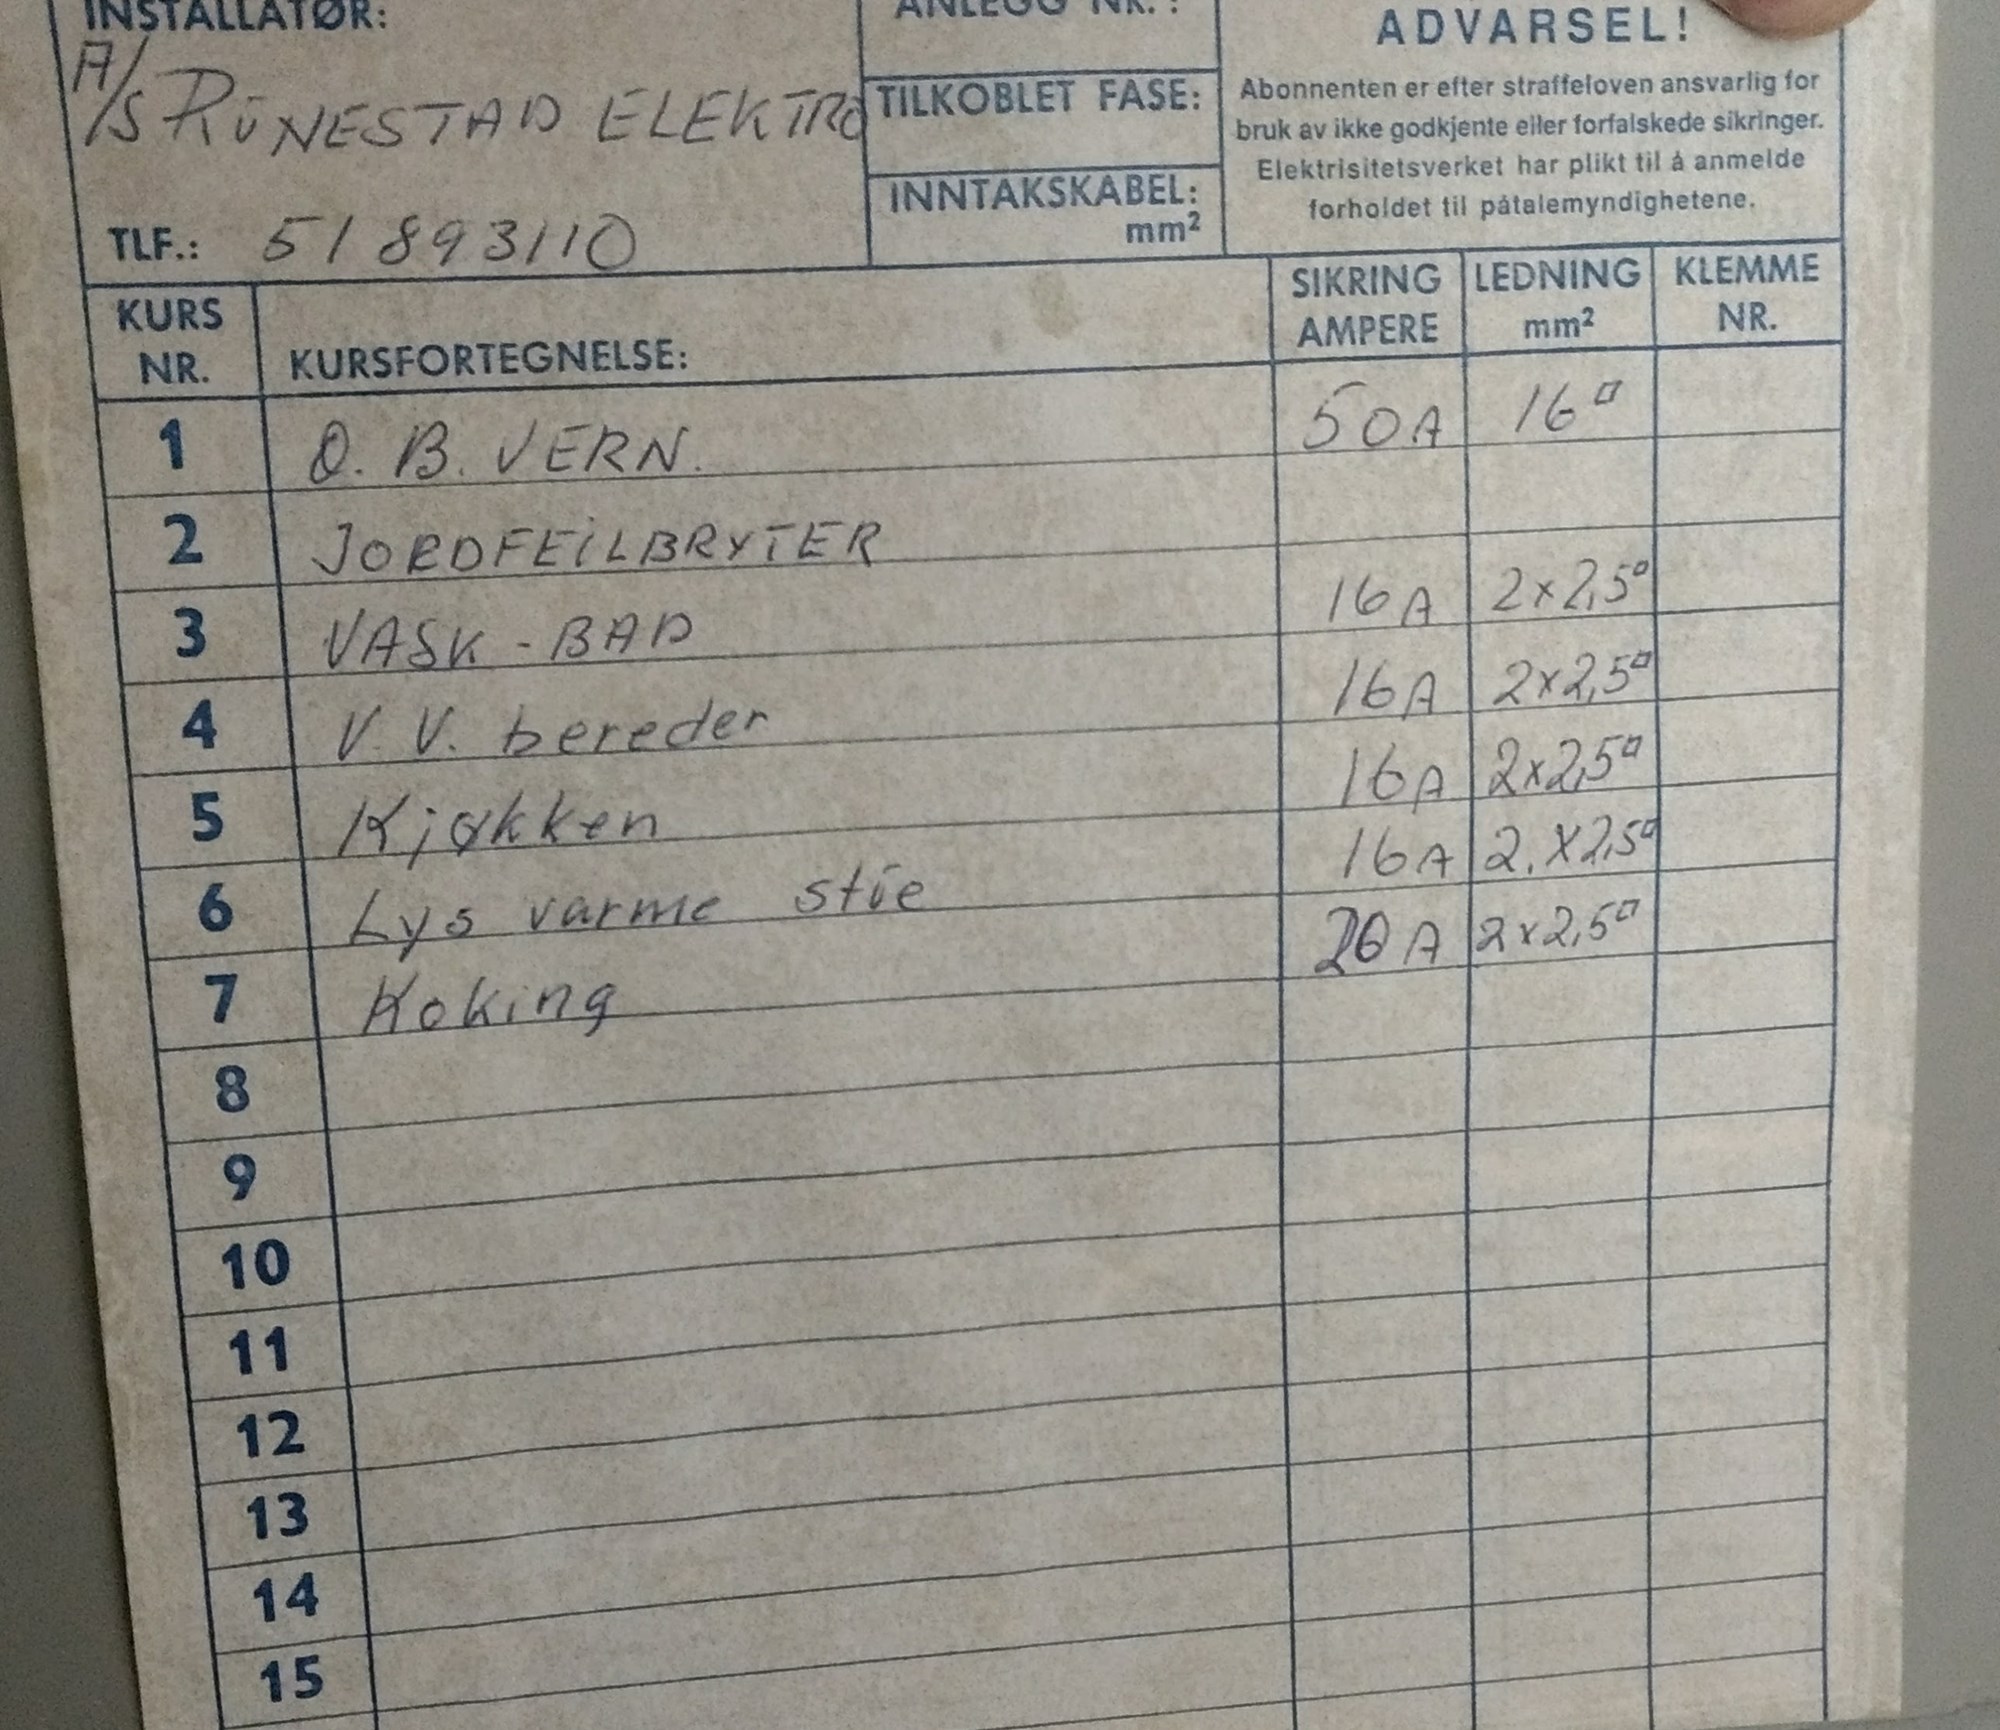 INSTALLATØR:
A/S RUNESTAD ELEKTRO
TLF.: 51893110
ANLEGG NR.:
TILKOBLET FASE:
INNTAKSKABEL:
mm²
ADVARSEL!
Abonnenten er efter straffeloven ansvarlig for
bruk av ikke godkjente eller forfalskede sikringer.
Elektrisitetsverket har plikt til å anmelde
forholdet til påtalemyndighetene.
KURS NR. KURSFORTEGNELSE: SIKRING AMPERE LEDNING mm² KLEMME NR.
1 O. B. VERN. 50A 16□
2 JORDFEILBRYTER
3 VASK - BAD 16A 2x2,5□
4 V. V. bereder 16A 2x2,5□
5 Kjøkken 16A 2x2,5□
6 Lys varme stue 16A 2.x2,5□
7 Koking 20A 2x2,5□
8
9
10
11
12
13
14
15